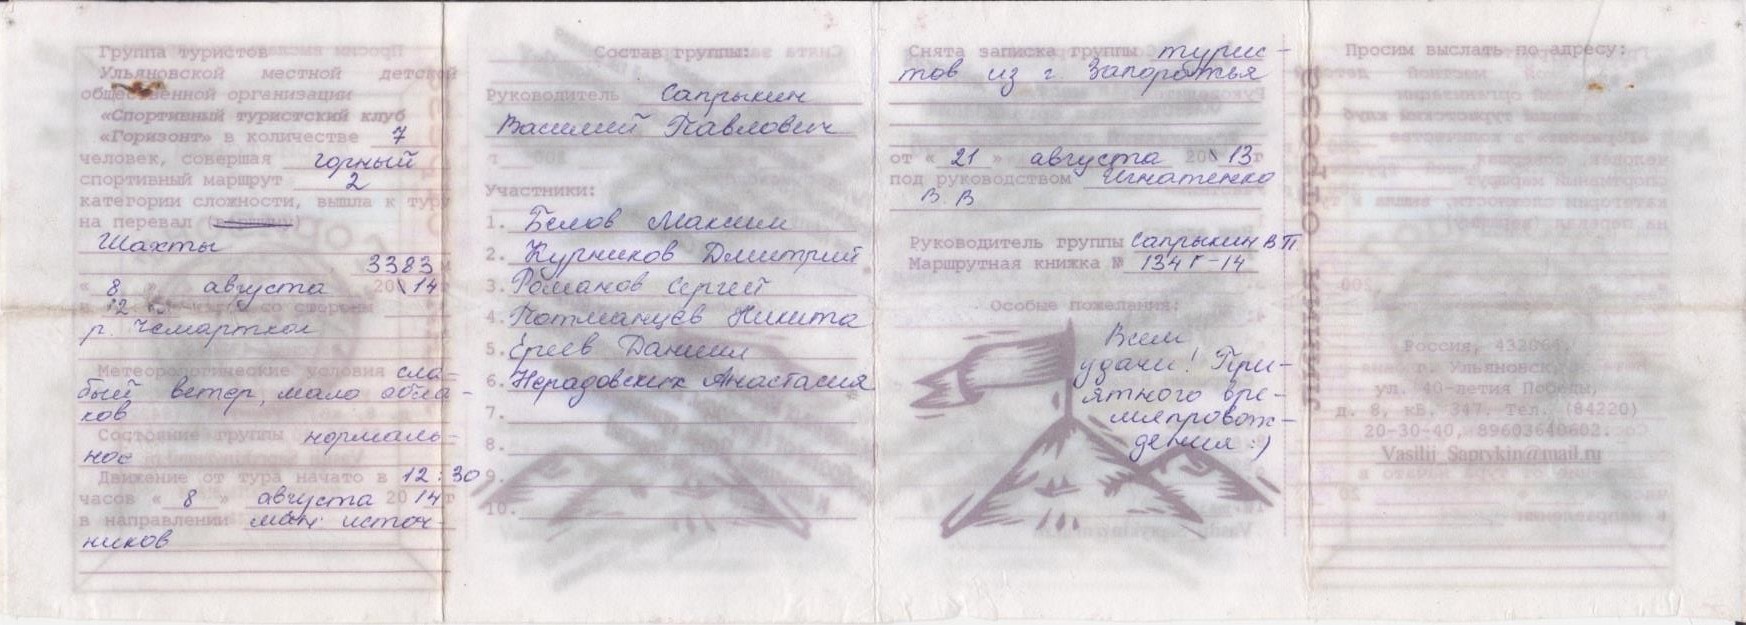 Группа туристов
Ульяновской местной детской
общественной организации
«Спортивный туристский клуб
«Горизонт» в количестве 7
человек, совершая горный
спортивный маршрут 2
категории сложности, вышла к туру
на перевал
Шахты
3383
« 8 » августа 2014 г
в 12
р. Чемарткол
Метеорологические условия сла-
бый ветер, мало обла-
ков
Состояние группы нормаль-
ное
Движение от тура начато в 12:30
часов « 8 » августа 2014 г
в направлении источ-
ников
Состав группы:
Руководитель Сапрыкин
Василий Павлович
Участники:
1. Белов Максим
2. Курников Дмитрий
3. Романов Сергей
4. Потманцев Никита
5. Даниил
6. Нерадовских Анастасия
7.
8.
9.
10.
Снята записка группы турис-
тов из г Запорожья
от « 21 » августа 2013 г
под руководством Игнатенко
В. В
Руководитель группы Сапрыкин ВП
Маршрутная книжка № 134Г-14
Особые пожелания:
Всем
удачи! При-
ятного вре-
мяпровож-
дения :)
ЛИНИЯ ОТРЕЗА
Просим выслать по адресу:
Россия, 432064,
г. Ульяновск,
ул. 40-летия Победы,
д. 8, кв. 347. Тел. (84220)
20-30-40, 89603640602.
Vasilij_Saprykin@mail.ru